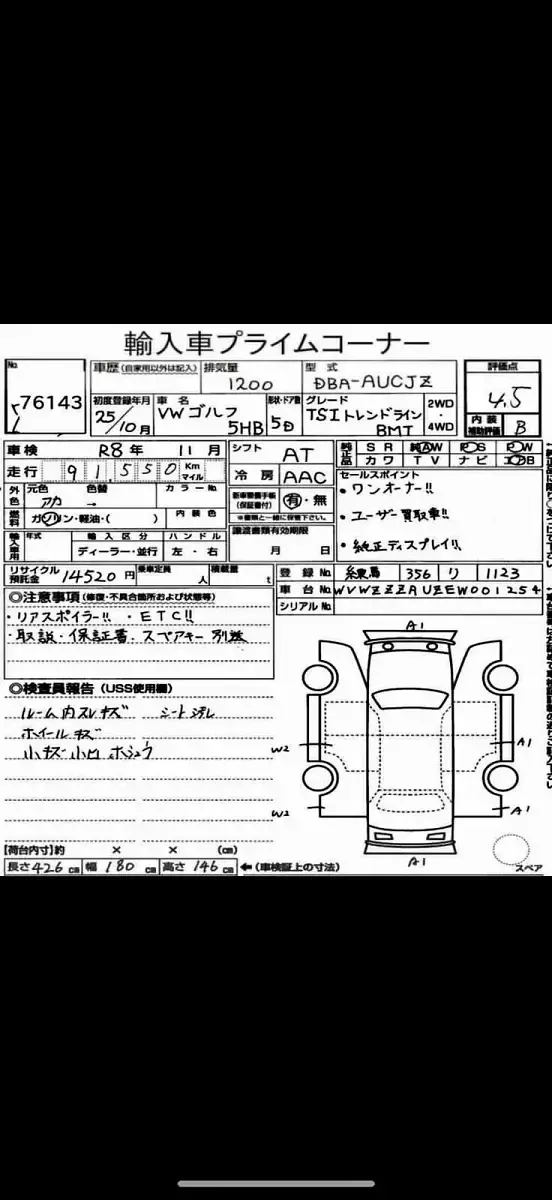 輸入車プライムコーナー
No.
76143
車歴(自家用以外は記入)
排気量
1200
型式
DBA-AUCJZ
評価点
4.5
初度登録年月
25/10月
車名
VWゴルフ
5HB
形状・ドア数
5D
グレード
TSIトレンドライン
BMT
2WD・4WD
内装
補助評価
B
車検 R8年 11月
シフト AT
純正品 SR 純AW PS PW
カワ TV ナビ エアB
走行 91,550 Km マイル
冷房 AAC
セールスポイント
・ワンオーナー!!
・ユーザー買取車!!
・純正ディスプレイ!!
外色 元色 アカ 色替 → カラーNo.
新車整備手帳(保証書付) 有・無
※書類と一緒に保管下さい。
燃料 ガソリン・軽油・( ) 内装色
輸入車用 年式 輸入区分 ハンドル
ディーラー・並行 左・右
譲渡書類有効期限
月 日
リサイクル預託金 14520円 乗車定員 人 積載量 t
登録No. 練馬 356 り 1123
車台No. WVWZZZAUZEW001254
シリアルNo.
◎注意事項(修復・不具合箇所および状態等)
・リアスポイラー!! ・ETC!!
・取説・保証書・スペアキー 別送
◎検査員報告(USS使用欄)
ルーム内スレキズ シート汚レ
ホイールキズ
小キズ小凹 ホシュウ
A1
W2
A1
W2
A1
A1
スペア
【荷台内寸】約 × × (cm)
長さ426cm 幅180cm 高さ146cm ←(車検証上の寸法)